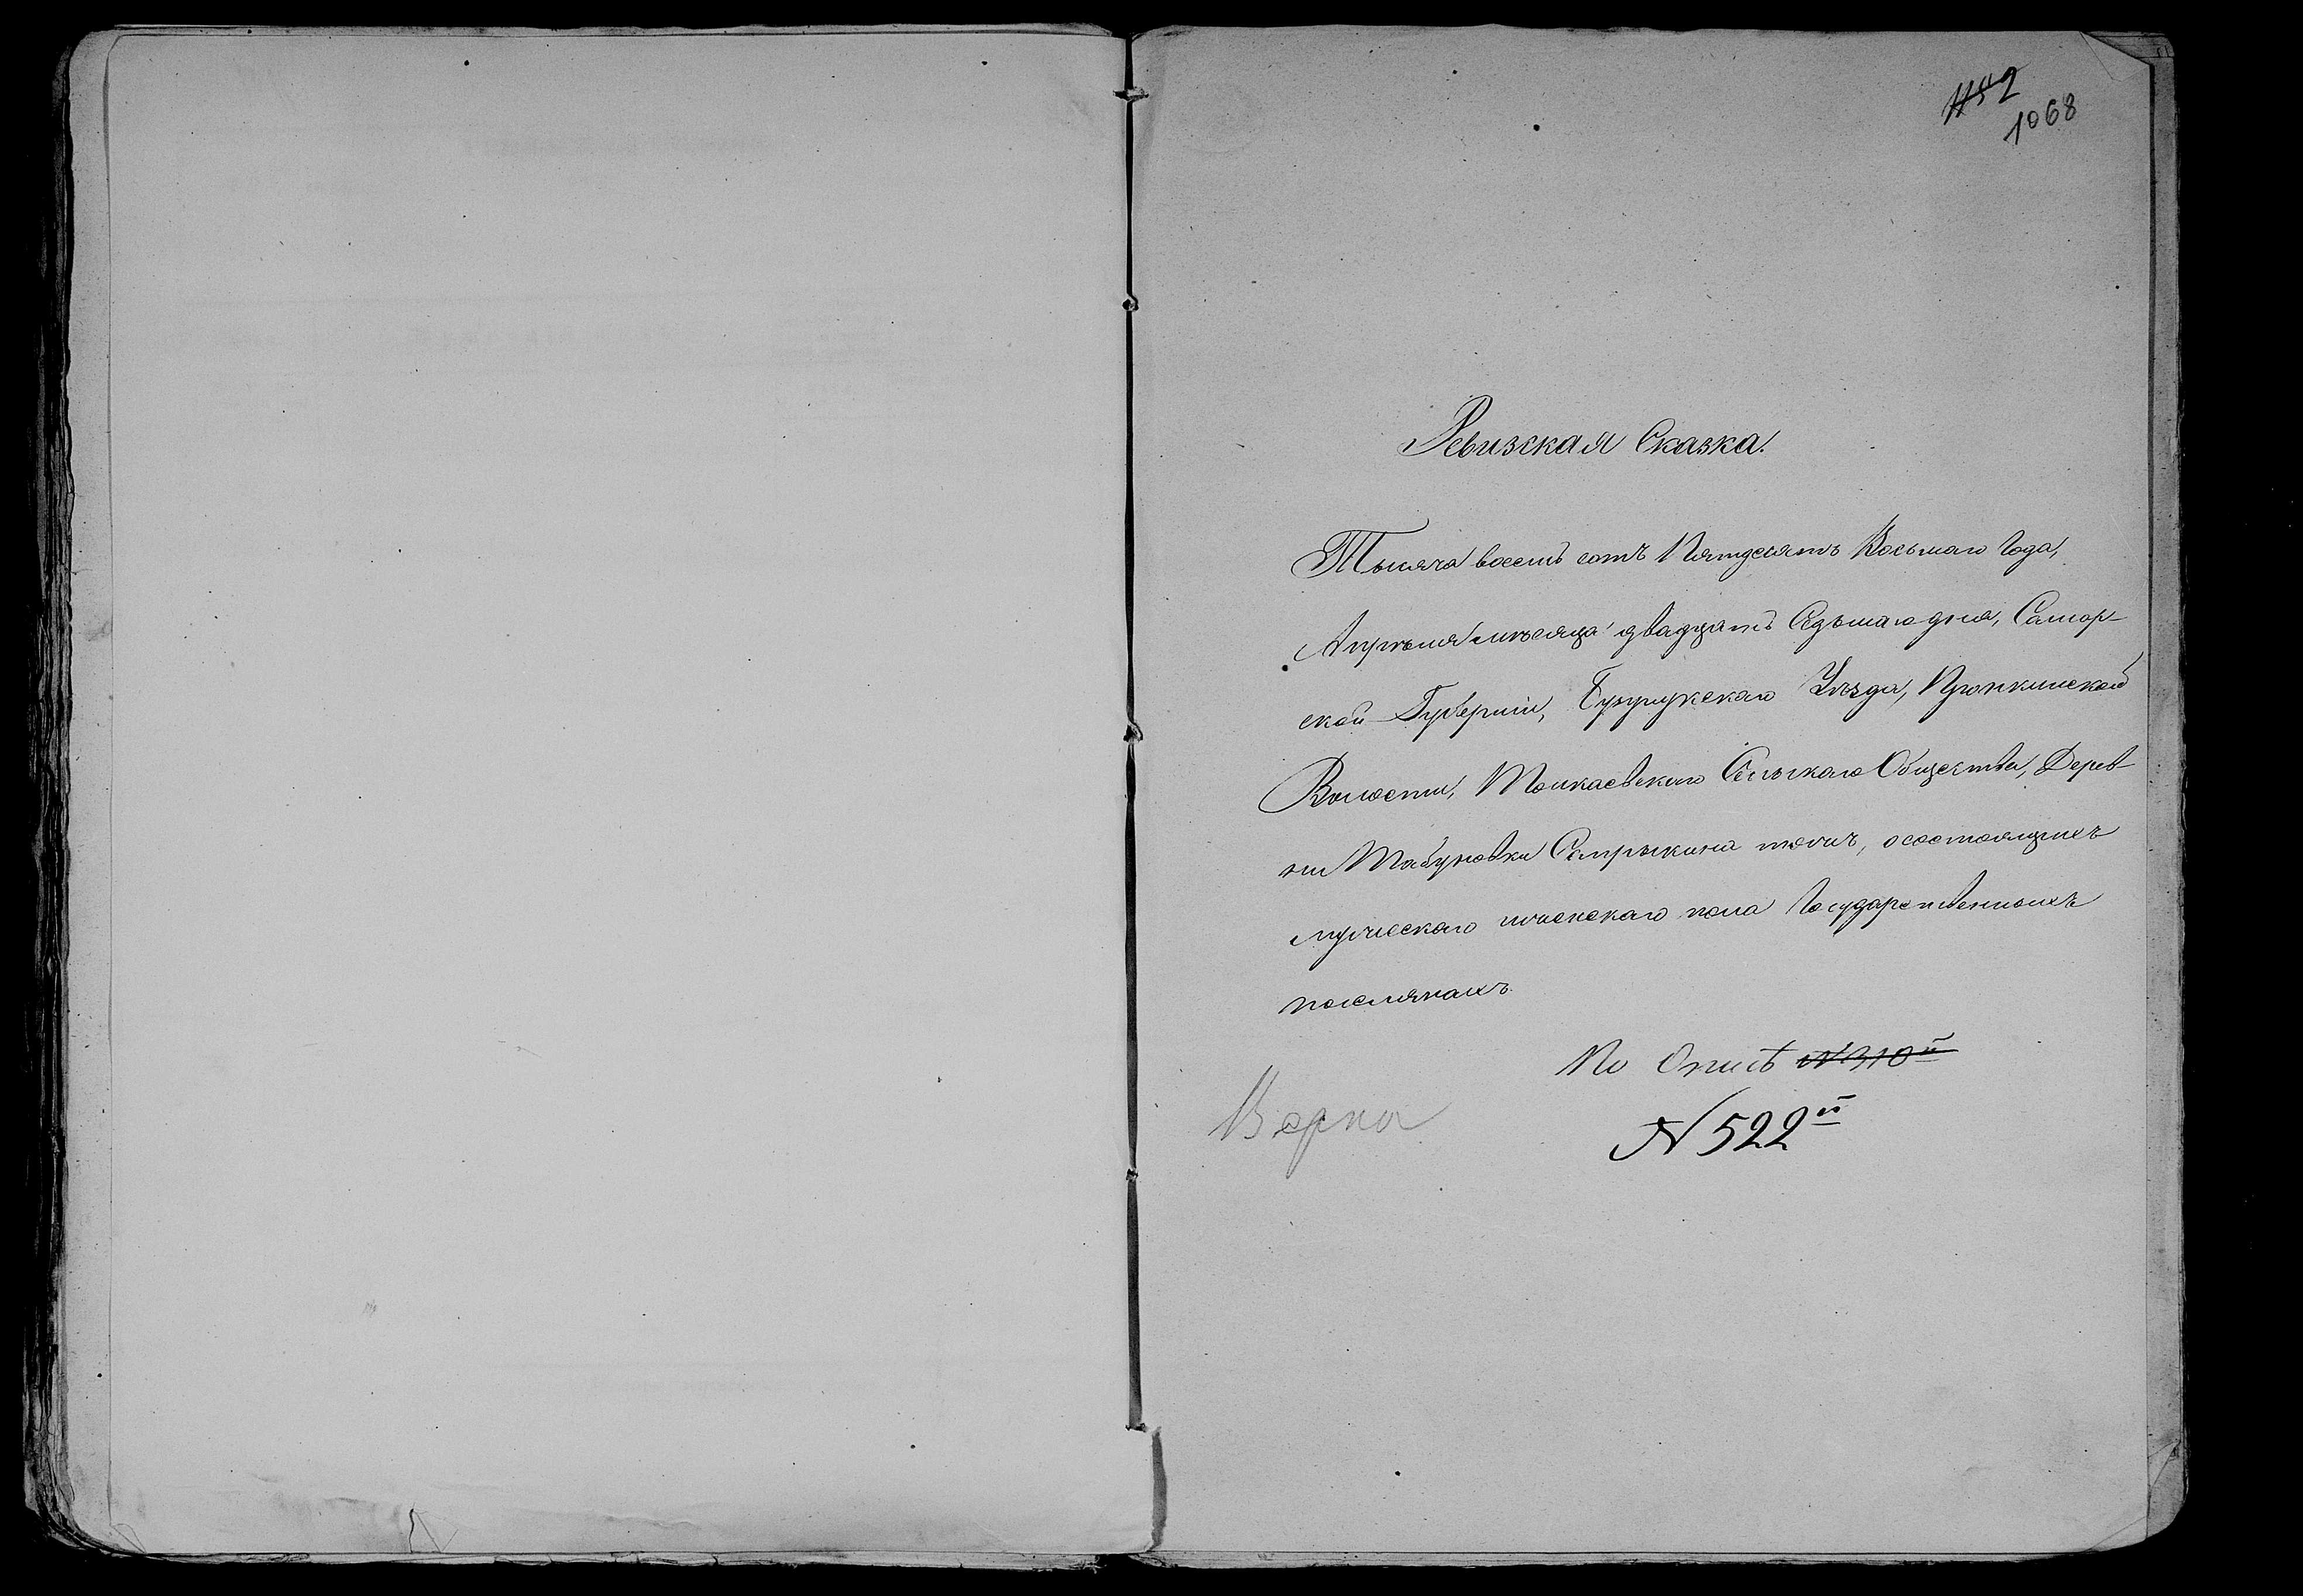 1068
Ревизская Сказка.
Тысяча восемь сотъ Пятдесятъ Восьмаго Года,
Апрѣля мѣсяца двадцать Седьмаго дня, Самар-
ской Губерніи, Бузулукскаго Уѣзда, Пронкинской
Волости, Толкаевскаго Сельскаго Общества, Дерев-
ни Табуновки Сапрыкина тожъ, о состоящихъ
мужескаго и женскаго пола Государственныхъ
поселянахъ.
По Описѣ №310й
№522й
Верна